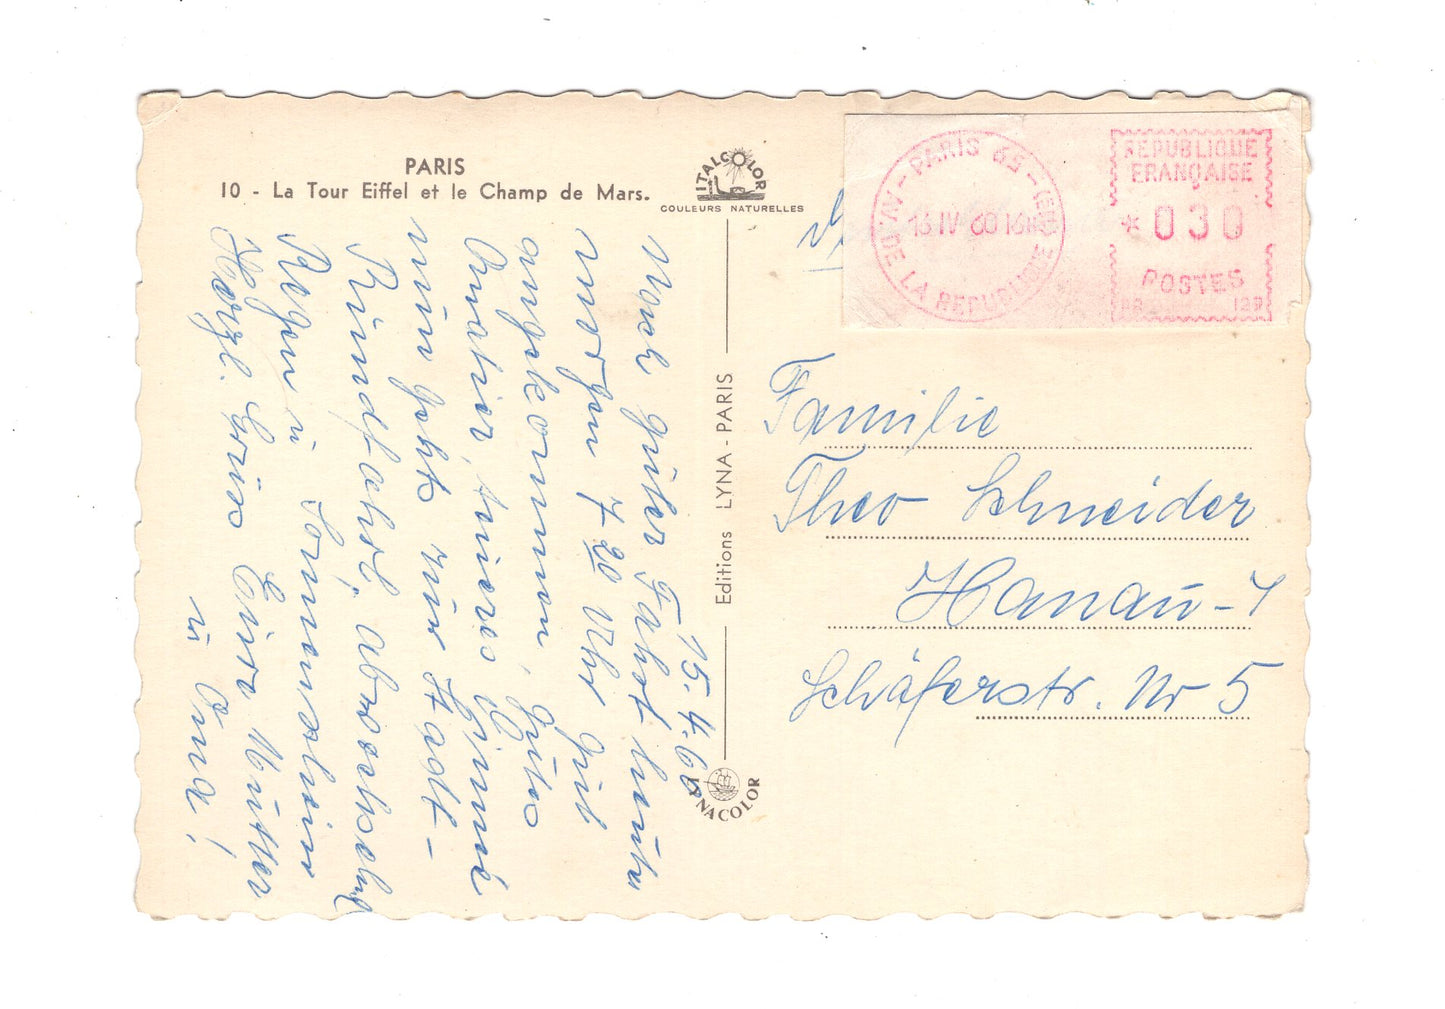 PARIS
10 - La Tour Eiffel et le Champ de Mars.
ITALCOLOR
COULEURS NATURELLES
Editions LYNA - PARIS
LYNACOLOR
PARIS 65
AV. DE LA REPUBLIQUE
16 IV 60 16H
REPUBLIQUE
FRANÇAISE
* 030
POSTES
15.4.60
Nach guter Fahrt heute
morgen 7 20 Uhr gut
angekommen, gutes
Quatier, kurzes
nun geht zur Stadt-
Rundfahrt, abwechselnd
Regen u. Sonnenschein
Herzl. Grüße Eure Mutter
u. Oma!
Familie
Theo Schneider
Hanau-1
Schäferstr. Nr 5